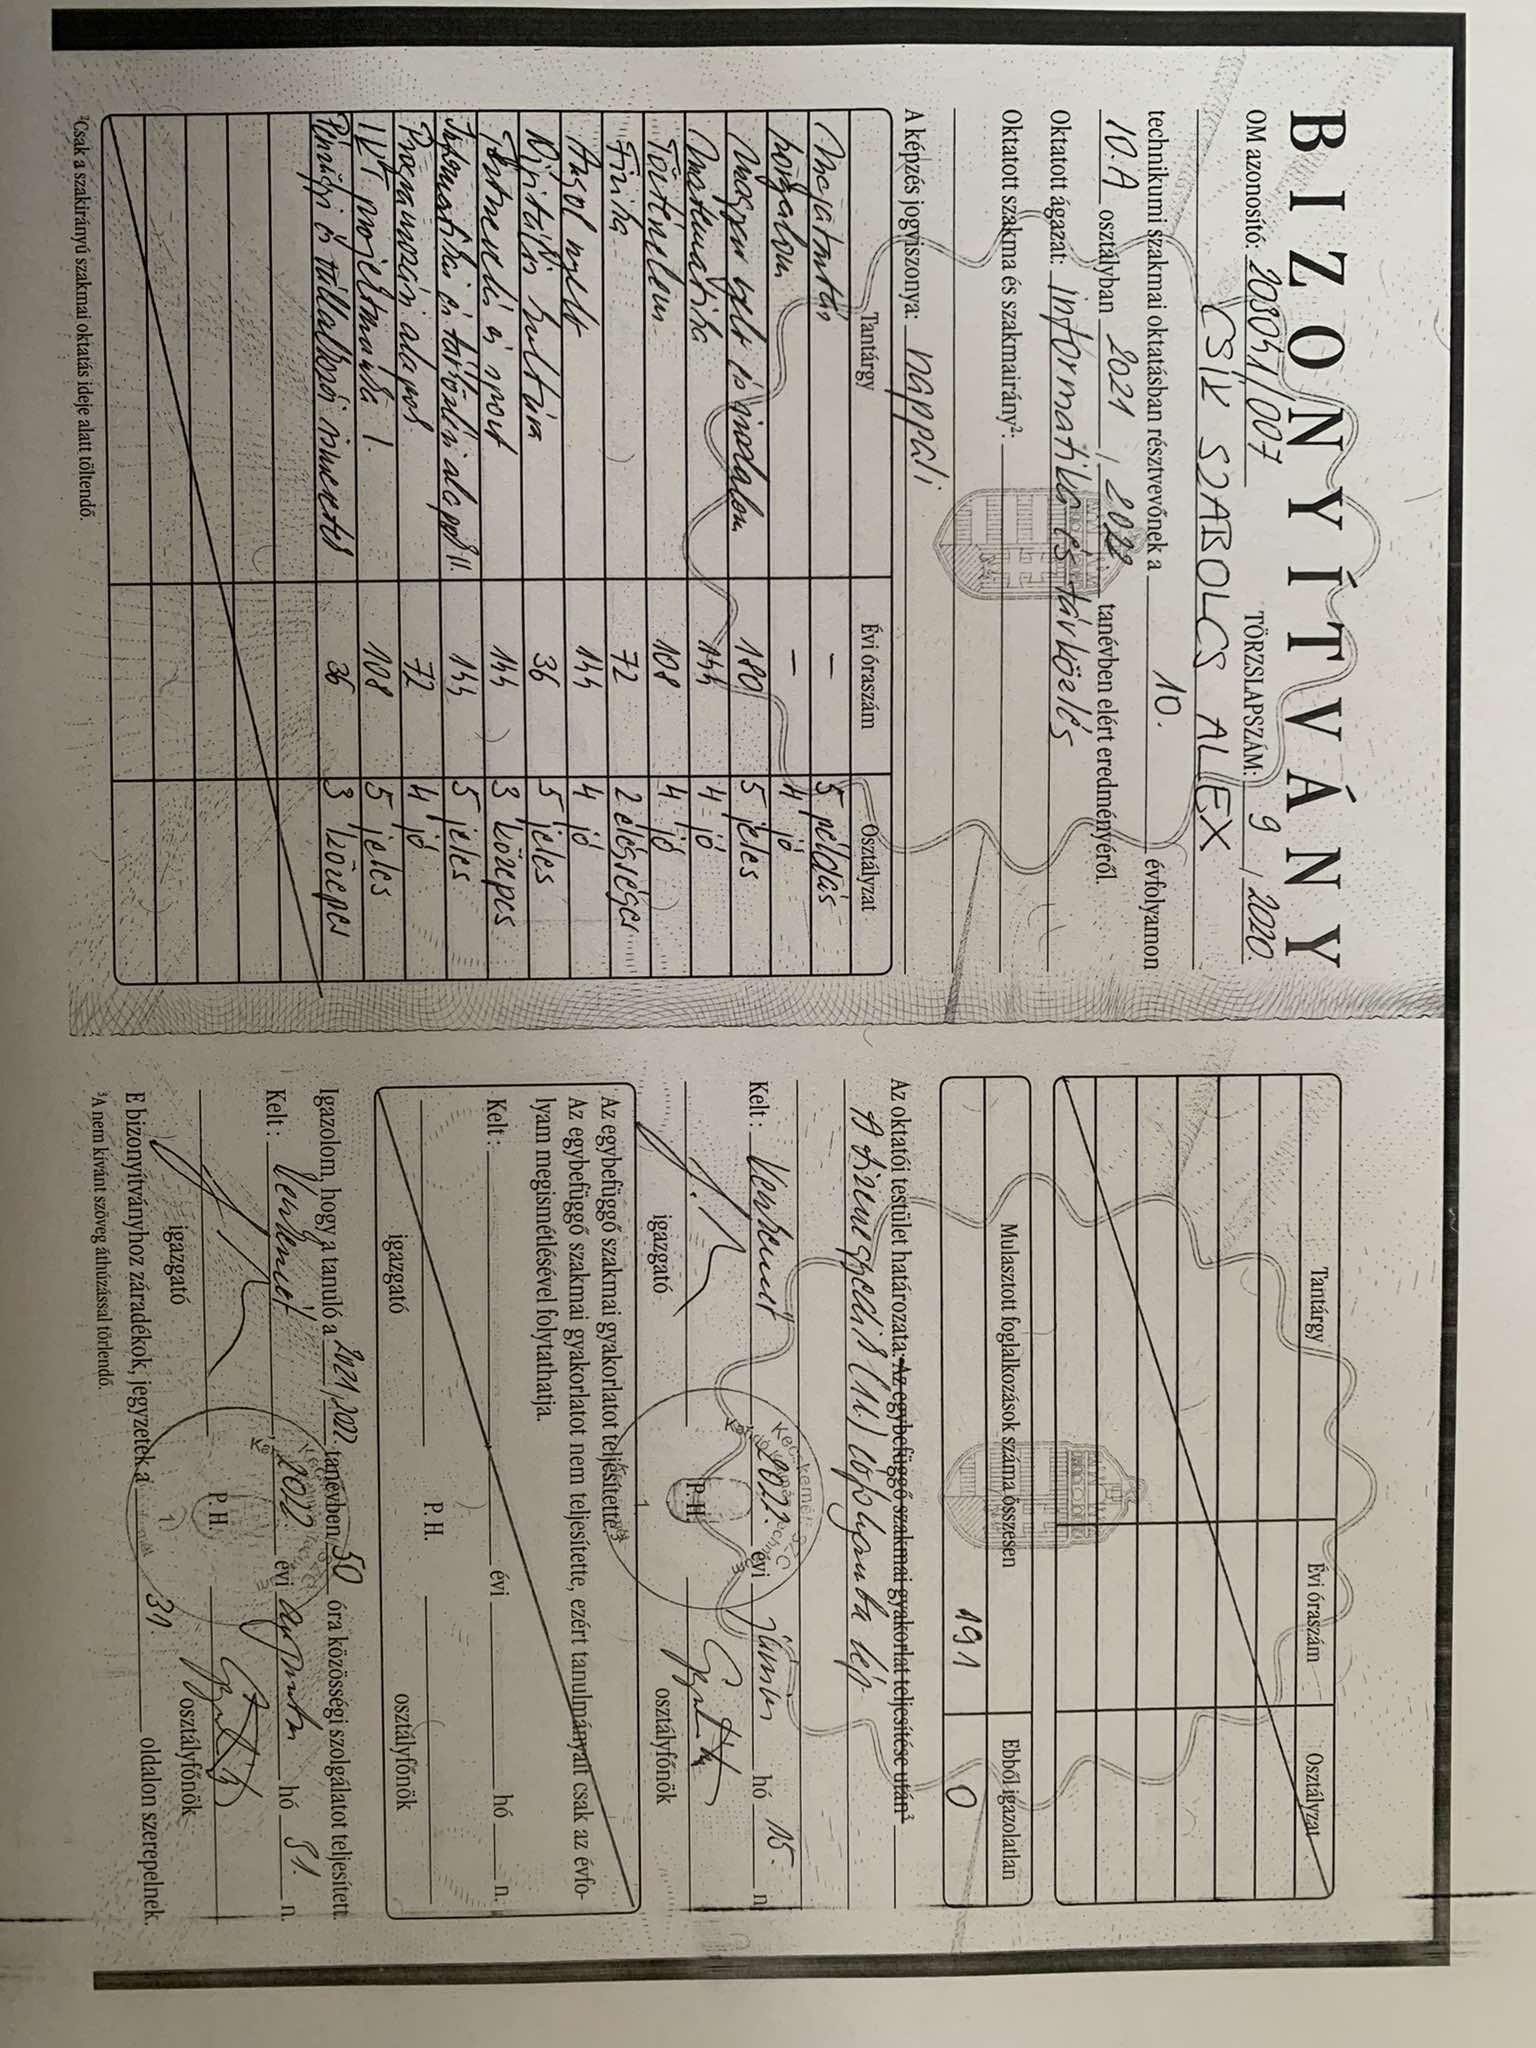 BIZONYÍTVÁNY
OM azonosító: 203041/007 TÖRZSLAPSZÁM: 9 / 2020.
CSÍK SZABOLCS ALEX
technikumi szakmai oktatásban résztvevőnek a 10. évfolyamon
10.A osztályban 2021 / 2022 tanévben elért eredményéről.
Oktatott ágazat: informatika és távközlés
Oktatott szakma és szakmairány²:
A képzés jogviszonya: nappali
Tantárgy Évi óraszám Osztályzat
Magatartás — 5 példás
Szorgalom — 4 jó
Magyar nyelv és irodalom 180 5 jeles
Matematika 144 4 jó
Történelem 108 4 jó
Fizika 72 2 elégséges
Angol nyelv 144 4 jó
Digitális kultúra 36 5 jeles
Testnevelés és sport 144 3 közepes
Informatika és távközlési alapok II. 144 5 jeles
Programozási alapok 72 4 jó
IKT projektmunka I. 108 5 jeles
Pénzügyi és vállalkozói ismeretek 36 3 közepes
²Csak a szakirányú szakmai oktatás ideje alatt töltendő.
Tantárgy Évi óraszám Osztályzat
Mulasztott foglalkozások száma összesen Ebből igazolatlan
191 0
Az oktatói testület határozata: Az egybefüggő szakmai gyakorlat teljesítése után³
A tizenegyedik (11.) évfolyamba lép.
Kelt: Kecskemét, 2022. évi június hó 15. n.
igazgató P. H. osztályfőnök
Az egybefüggő szakmai gyakorlatot teljesítette.³
Az egybefüggő szakmai gyakorlatot nem teljesítette, ezért tanulmányait csak az évfo-
lyam megismétlésével folytathatja.
Kelt: évi hó n.
igazgató P. H. osztályfőnök
Igazolom, hogy a tanuló a 2021/2022. tanévben 50 óra közösségi szolgálatot teljesített.
Kelt: Kecskemét, 2022. évi augusztus hó 31. n.
igazgató P. H. osztályfőnök
E bizonyítványhoz záradékok, jegyzetek a 31. oldalon szerepelnek.
³A nem kívánt szöveg áthúzással törlendő.